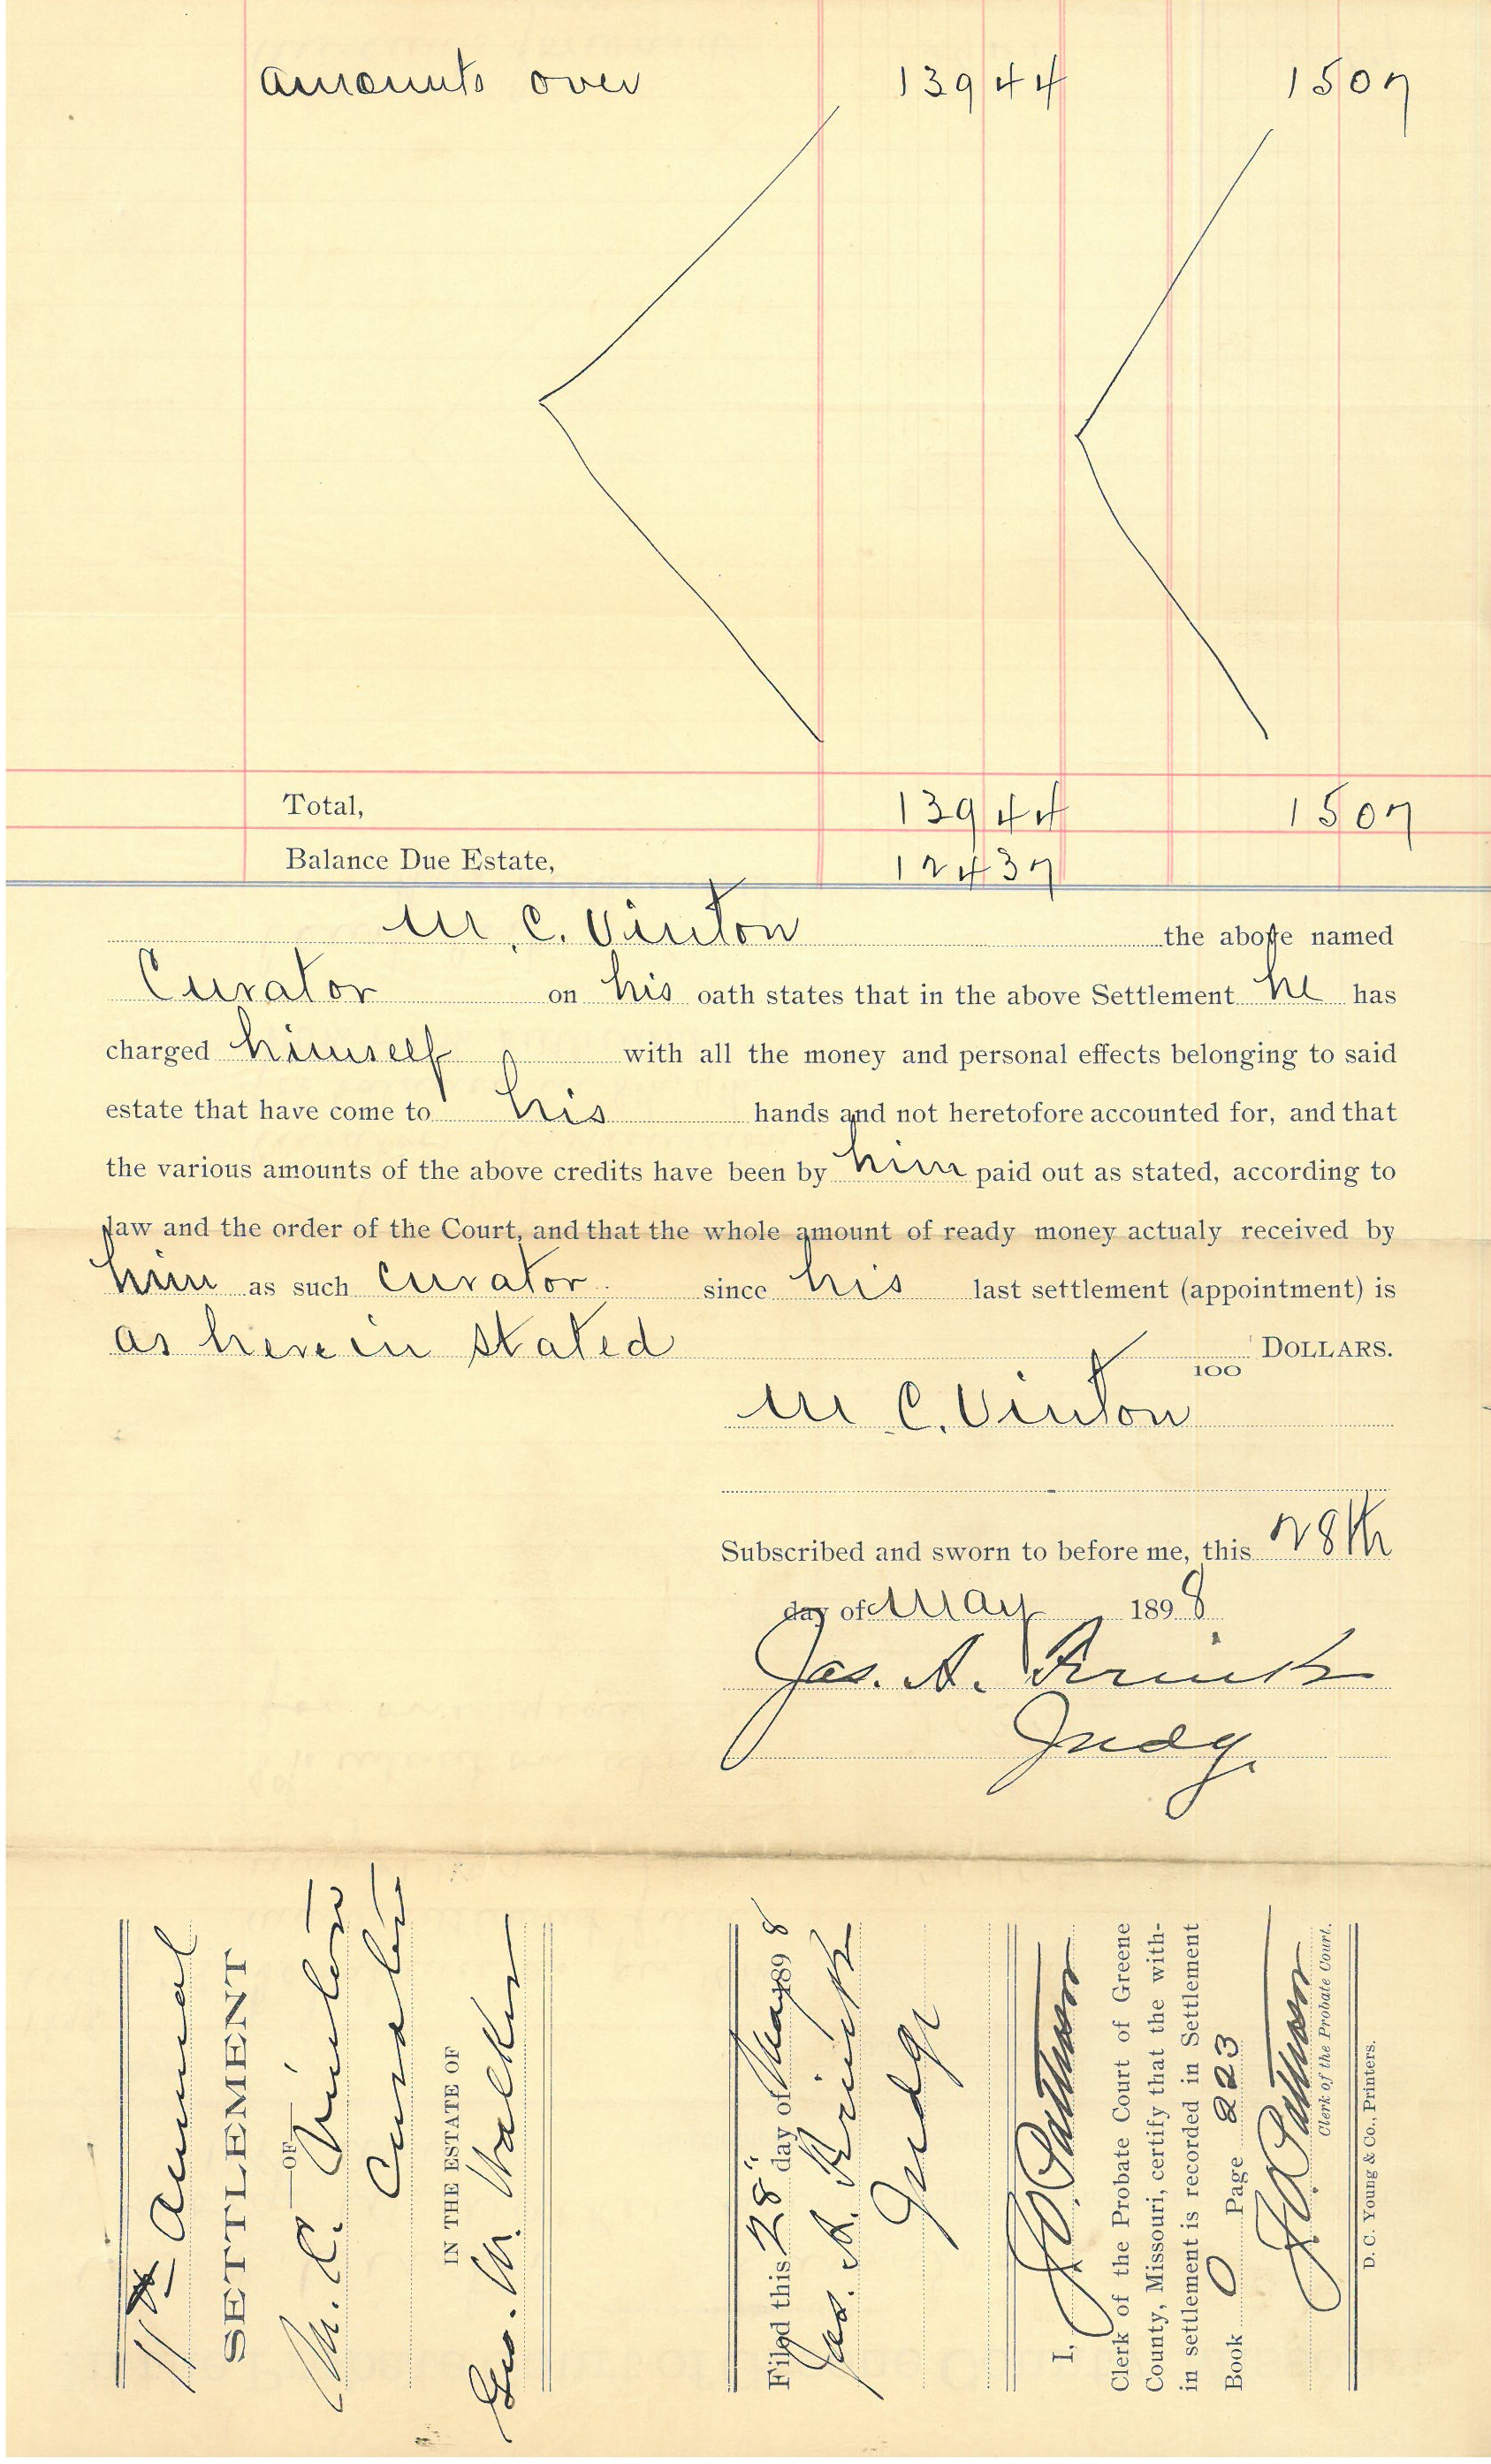 amounts over 139 44 15 07
Total, 139 44 15 07
Balance Due Estate, 124 37
M. C. Vinton the above named
Curator on his oath states that in the above Settlement he has
charged himself with all the money and personal effects belonging to said
estate that have come to his hands and not heretofore accounted for, and that
the various amounts of the above credits have been by him paid out as stated, according to
law and the order of the Court, and that the whole amount of ready money actualy received by
him as such Curator since his last settlement (appointment) is
as herein stated 100 DOLLARS.
M C. Vinton
Subscribed and sworn to before me, this 28th
day of May 1898
Jas. A. Frink
Judg.
Annual
SETTLEMENT
OF
M. C. Vinton
Curator
IN THE ESTATE OF
Geo. W. Walker
Filed this 28" day of May 1898
Jas. A. Frink
Judge
I,
Clerk of the Probate Court of Greene
County, Missouri, certify that the with-
in settlement is recorded in Settlement
Book O Page 223
Clerk of the Probate Court.
D. C. Young & Co., Printers.